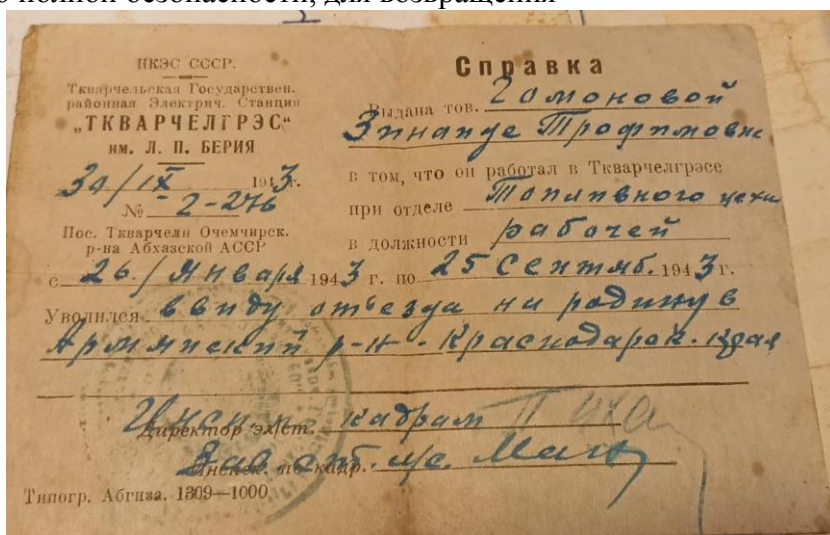 полной безопасности, для возвращения
НКЭС СССР.
Ткварчельская Государствен.
районная Электрич. Станция
„ТКВАРЧЕЛГРЭС“
им. Л. П. БЕРИЯ
30/IX 1943г.
№ 2-276
Пос. Ткварчели Очемчирск.
р-на Абхазской АССР
Справка
Выдана тов. Гамоновой
Зинаиде Трофимовне
в том, что он работал в Ткварчелгрэсе
при отделе Топливного цеха
в должности рабочей
с 26/Января 1943 г. по 25 Сентяб. 1943 г.
Уволился ввиду отъезда на родину в
Армянский р-н - Краснодарск. края
Директор эл/ст. кадрам
Инспек. по кадр.
Типогр. Абгиза. 1309—1000